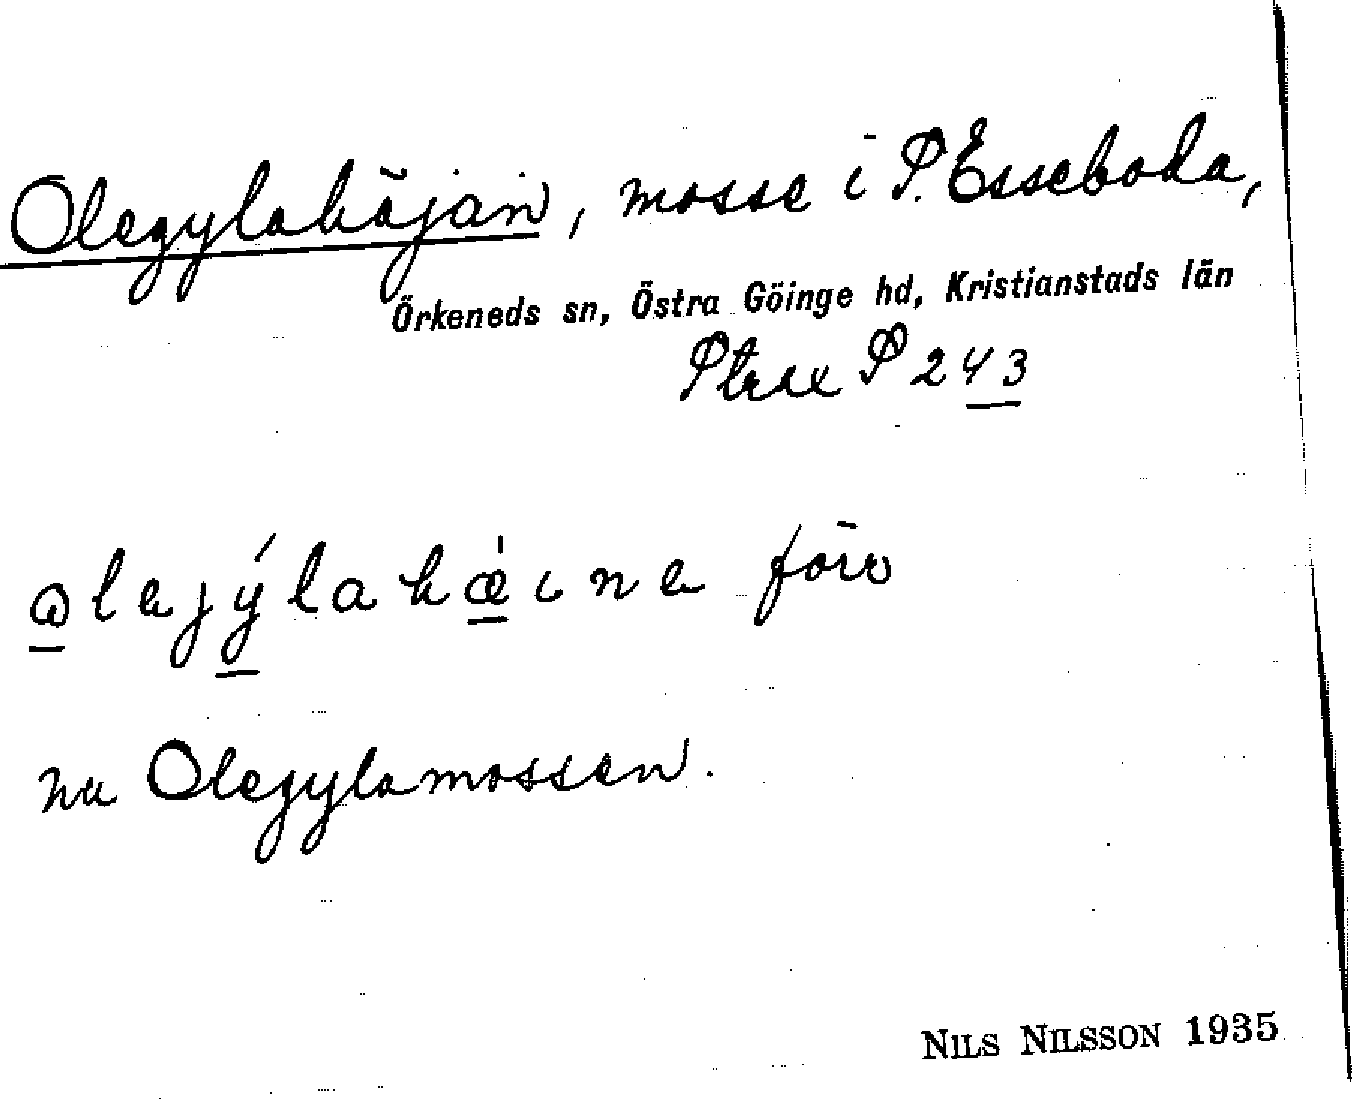 Olegylahäjan, mosse i S. Esseboda,
Örkeneds sn, Östra Göinge hd, Kristianstads län
Strax S 243
förv
nu Olegylamossen.
NILS NILSSON 1935